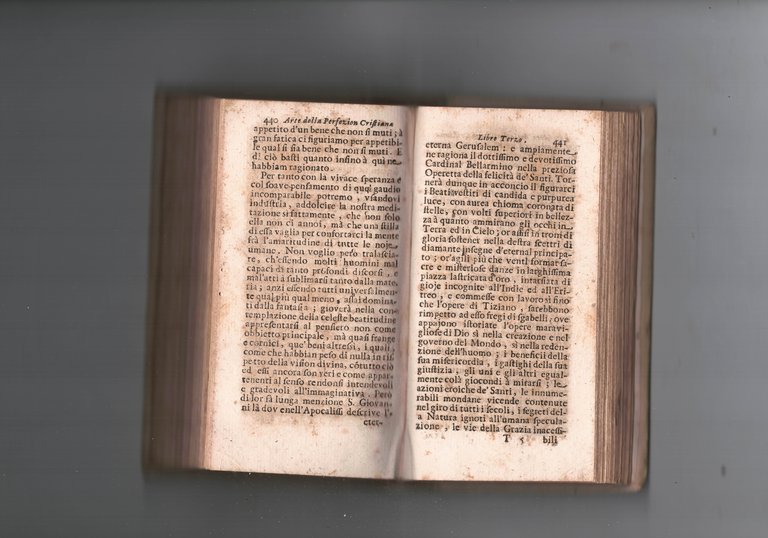 440 Arte della Perfezion Cristiana
appetito d'un bene che non si muti; à
gran fatica ci figuriamo per appetibi-
le qual si sia bene che non si muti. E
di ciò basti quanto insino à qui ne
habbiam ragionato.
Per tanto con la vivace speranza e
col soave pensamento di quel gaudio
incomparabile potremo, usandovi
industria, addolcire la nostra medi-
tazione sì fattamente, che non solo
ella non ci annoi, mà che una stilla
di essa vaglia per confortarci la mente
frà l'amaritudine di tutte le noje
umane. Non voglio però tralascia-
re, ch'essendo molti huomini mal
capaci di tanto profondi discorsi, e
mal'atti à sublimarsi tanto dalla mate-
ria; anzi essendo tutti universalmen-
te qual più qual meno, assai domina-
ti dalla fantasia; gioverà nella con-
templazione della celeste beatitudine
appresentarsi al pensiero non come
obbietto principale, mà quasi frange
e cornici, que' beni altresì, i quali,
come che habbian peso di nulla in ris-
petto della vision divina, cótutto ciò
ed essi ancora son veri e come appar-
tenenti al senso rendonsi intendevoli
e gradevoli all'immaginativa. Però
di lor fà lunga menzione S. Giovan-
ni là dov'enell'Apocalissi descrive l'e-
eter-
Libro Terzo. 441
eterna Gerusalem: e ampiamente
ne ragiona il dottissimo e devotissimo
Cardinal Bellarmino nella preziosa
Operetta della felicità de' Santi. Tor-
nerà dunque in acconcio il figurarci
i Beati vestiti di candida e purpurea
luce, con aurea chioma coronata di
stelle, con volti superiori in bellez-
za à quanto ammirano gli occhi in
Terra ed in Cielo; or assisi in troni di
gloria sostener nella destra scettri di
diamante insegne d'eternal principa-
to; or agili più che venti formar sa-
cre e misteriose danze in larghissima
piazza lastricata d'oro, intarsiata di
gioje incognite all'Indie ed all'Eri-
treo, e commesse con lavoro sì fino
che l'opere di Tiziano, sarebbono
rimpetto ad esso fregi di sgabelli, ove
appajono istoriate l'opere maravi-
gliose di Dio sì nella creazione e nel
governo del Mondo, sì nella reden-
zione dell'huomo; i beneficii della
sua misericordia, i gastighi della sua
giustizia, gli uni e gli altri egual-
mente colà giocondi à mirarsi; le
azioni eroiche de' Santi, le innume-
rabili mondane vicende contenute
nel giro di tutti i secoli, i segreti del-
la Natura ignoti all'umana specula-
zione, le vie della Grazia inacessi-
T 5 bili